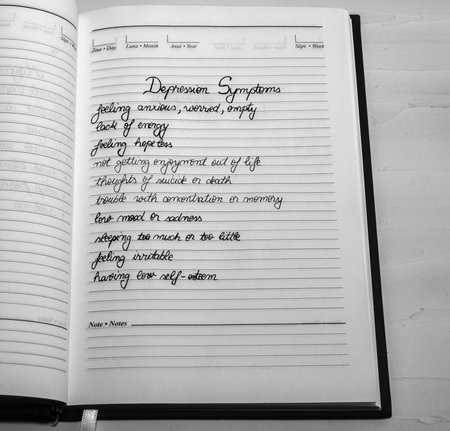 Ziua • Day Luna • Month Anul • Year Săpt. • Week
Depression Symptoms
feeling anxious, worried, empty
lack of energy
feeling hopeless
not getting enjoyment out of life
thoughts of suicide or death
trouble with concentration or memory
low mood or sadness
sleeping too much or too little
feeling irritable
having low self-esteem
Note • Notes